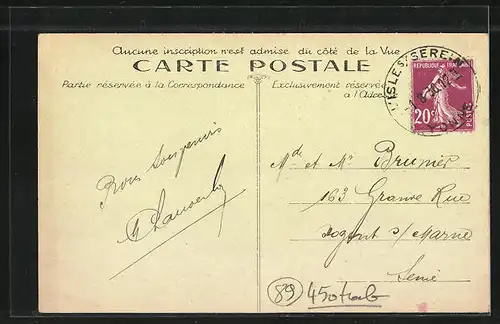 Aucune inscription n'est admise du côté de la Vue
CARTE POSTALE
Partie réservée à la Correspondance
Exclusivement réservé
à l'Adre
RÉPUBLIQUE FRANÇAISE
20c
POSTES
L'ISLE S/ SEREIN
Bons souvenirs
Md et Mr Brunier
163 Grande Rue
Nogent s/ Marne
Seine
89